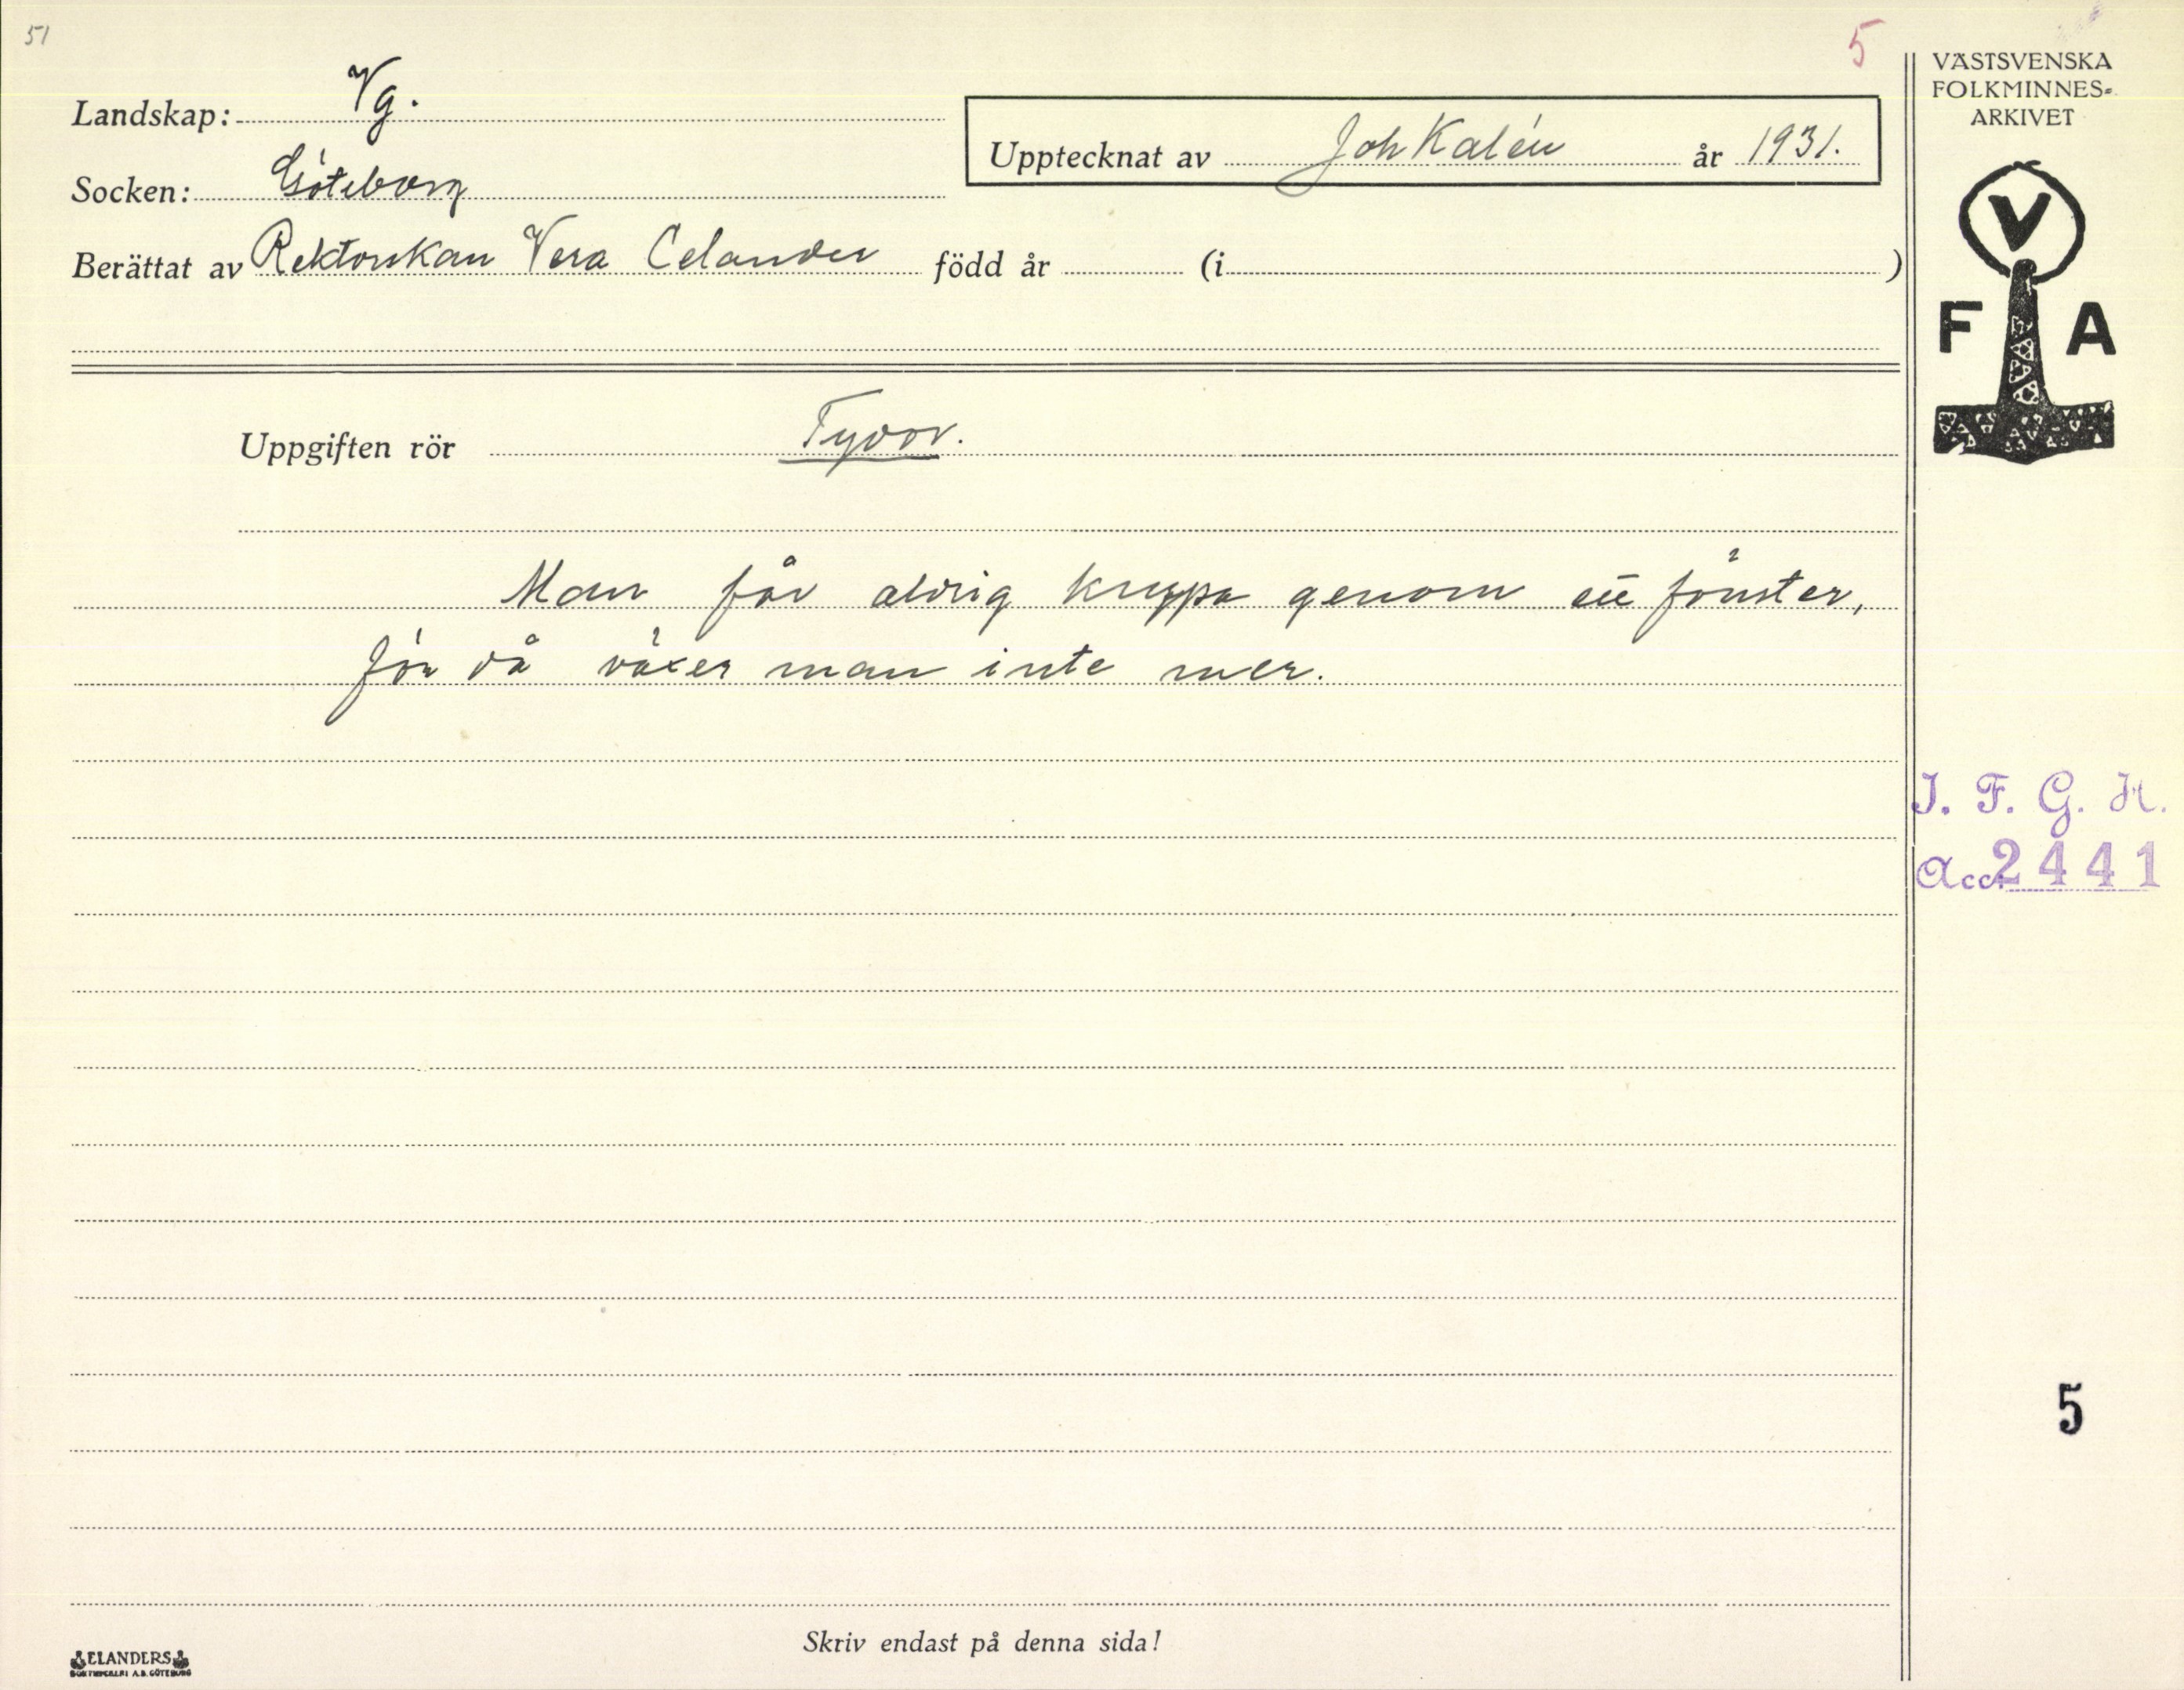 51
5
Landskap: Vg.
Socken: Göteborg
Upptecknat av Joh Kalén år 1931.
Berättat av Rektorskan Vera Celander född år (i )
Uppgiften rör Tydor.
Man får aldrig krypa genom ett fönster,
för då växer man inte mer.
Skriv endast på denna sida!
ELANDERS
BOKTRYCKERI A.B. GÖTEBORG
VÄSTSVENSKA
FOLKMINNES-
ARKIVET
V
F A
I. F. G. H.
Acc. 2441
5